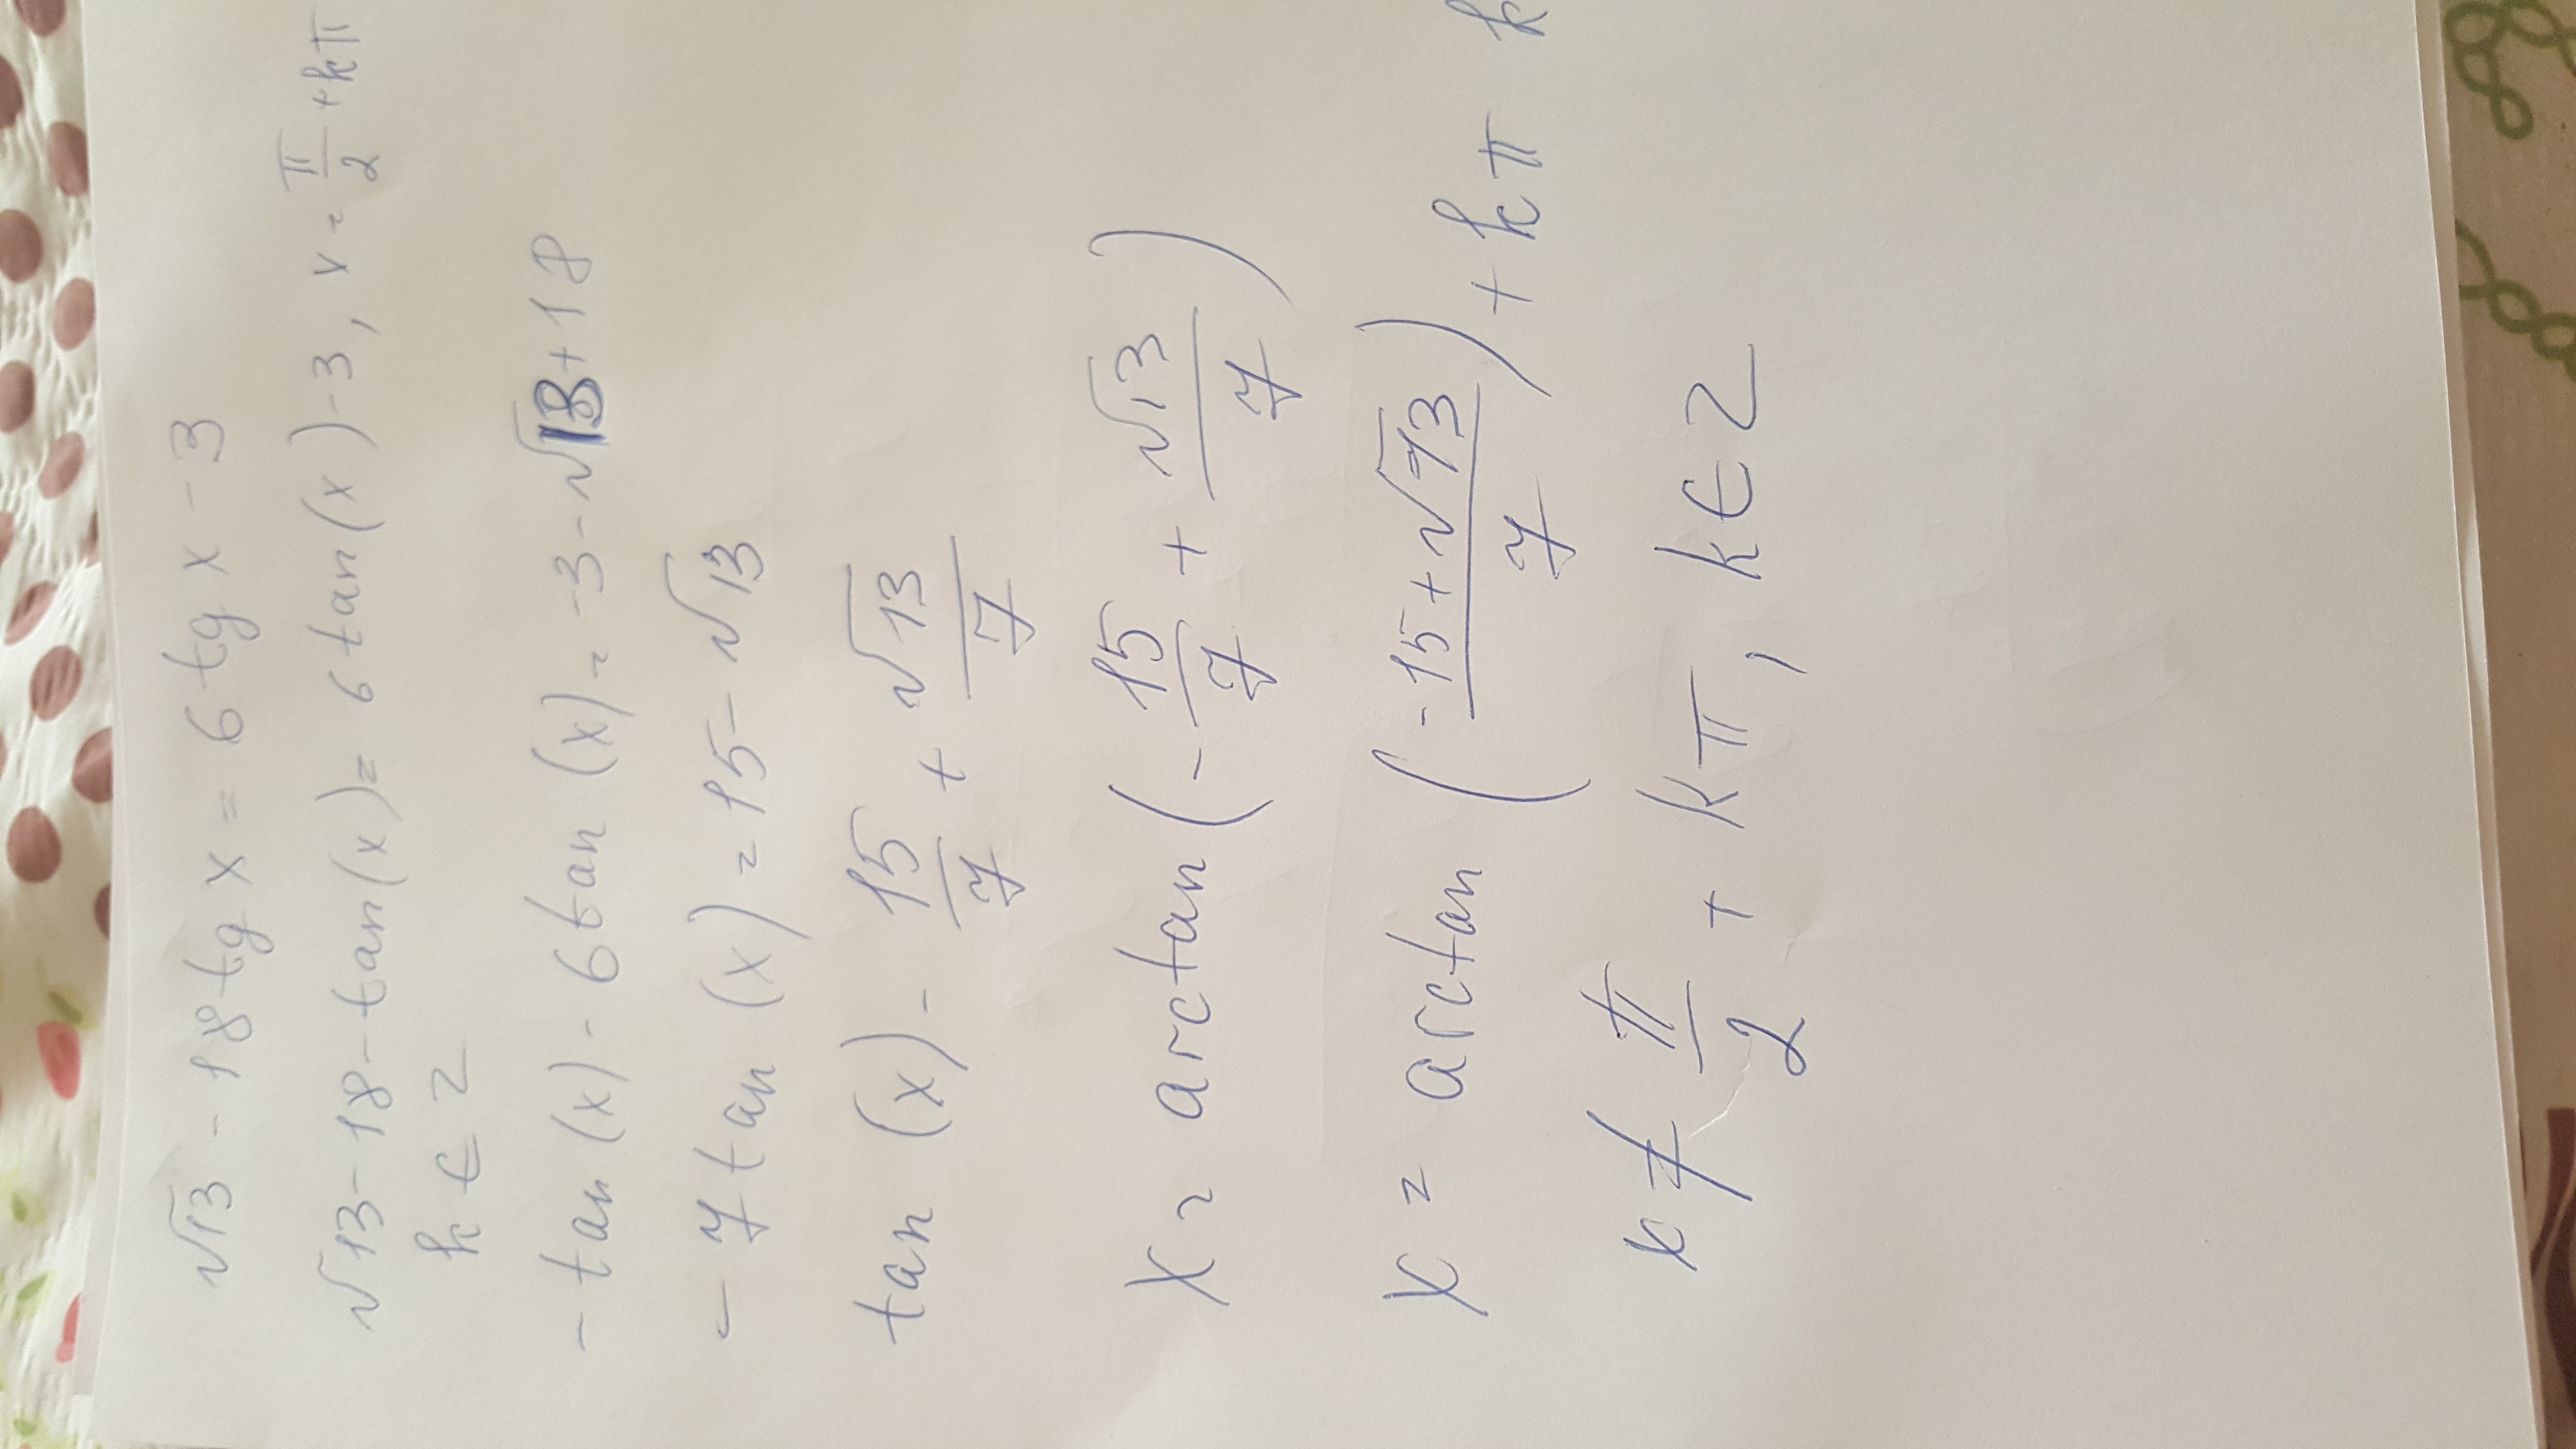 √13 - 18 tg x = 6 tg x - 3
√13 - 18 - tan(x) = 6 tan(x) - 3, x = π/2 + kπ
k ∈ Z
- tan(x) - 6 tan(x) = -3 - √13 + 18
- 7 tan(x) = 15 - √13
tan(x) - 15/7 + √13/7
x = arctan(- 15/7 + √13/7)
x = arctan((-15 + √13)/7) + kπ k
x ≠ π/2 + kπ, k ∈ Z